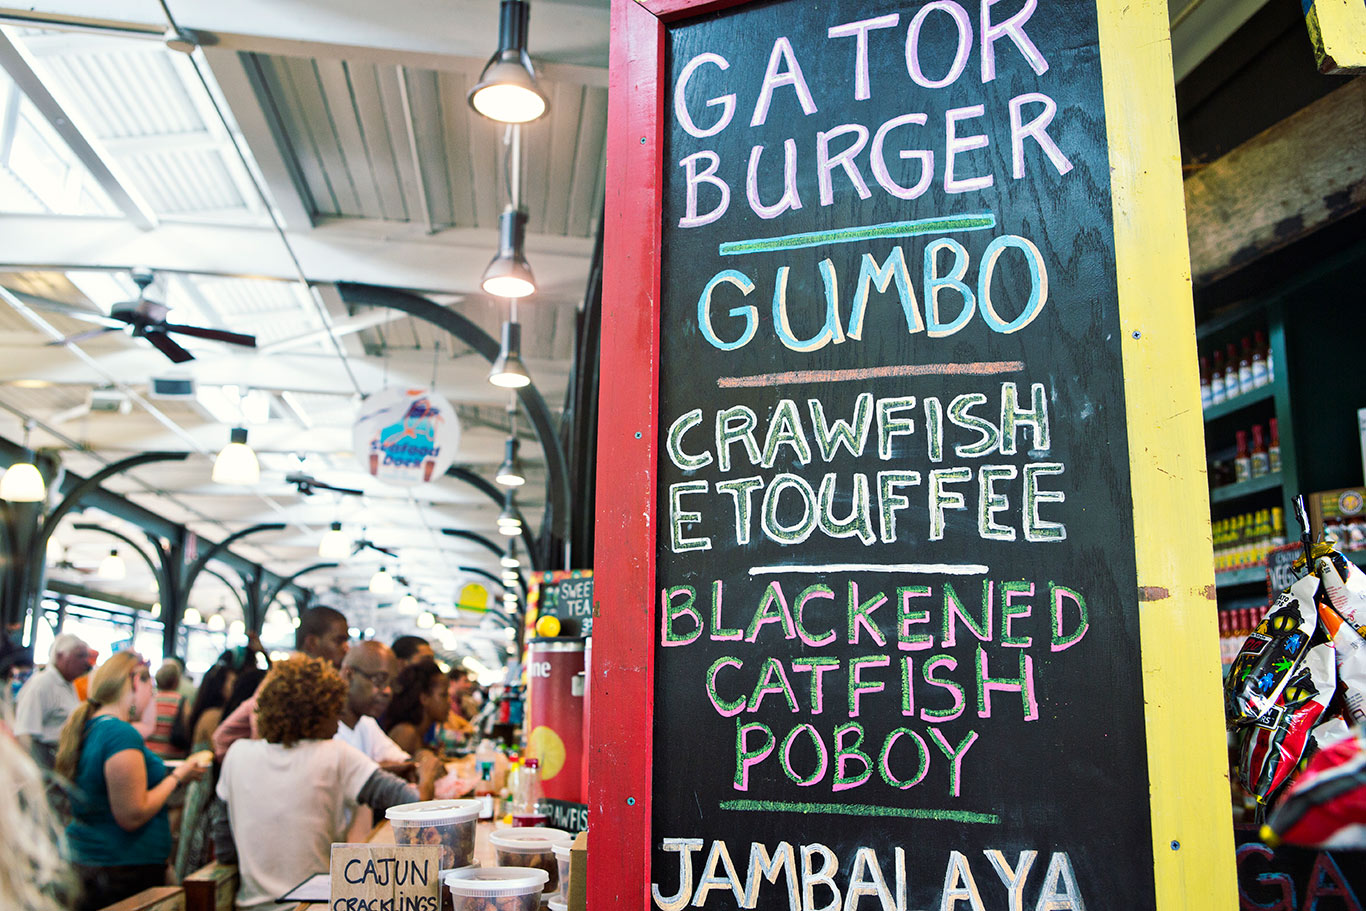 GATOR
BURGER
GUMBO
CRAWFISH
ETOUFFEE
BLACKENED
CATFISH
POBOY
JAMBALAYA
Seafood
Dock
SWEET
TEA
CAJUN
CRACKLINGS